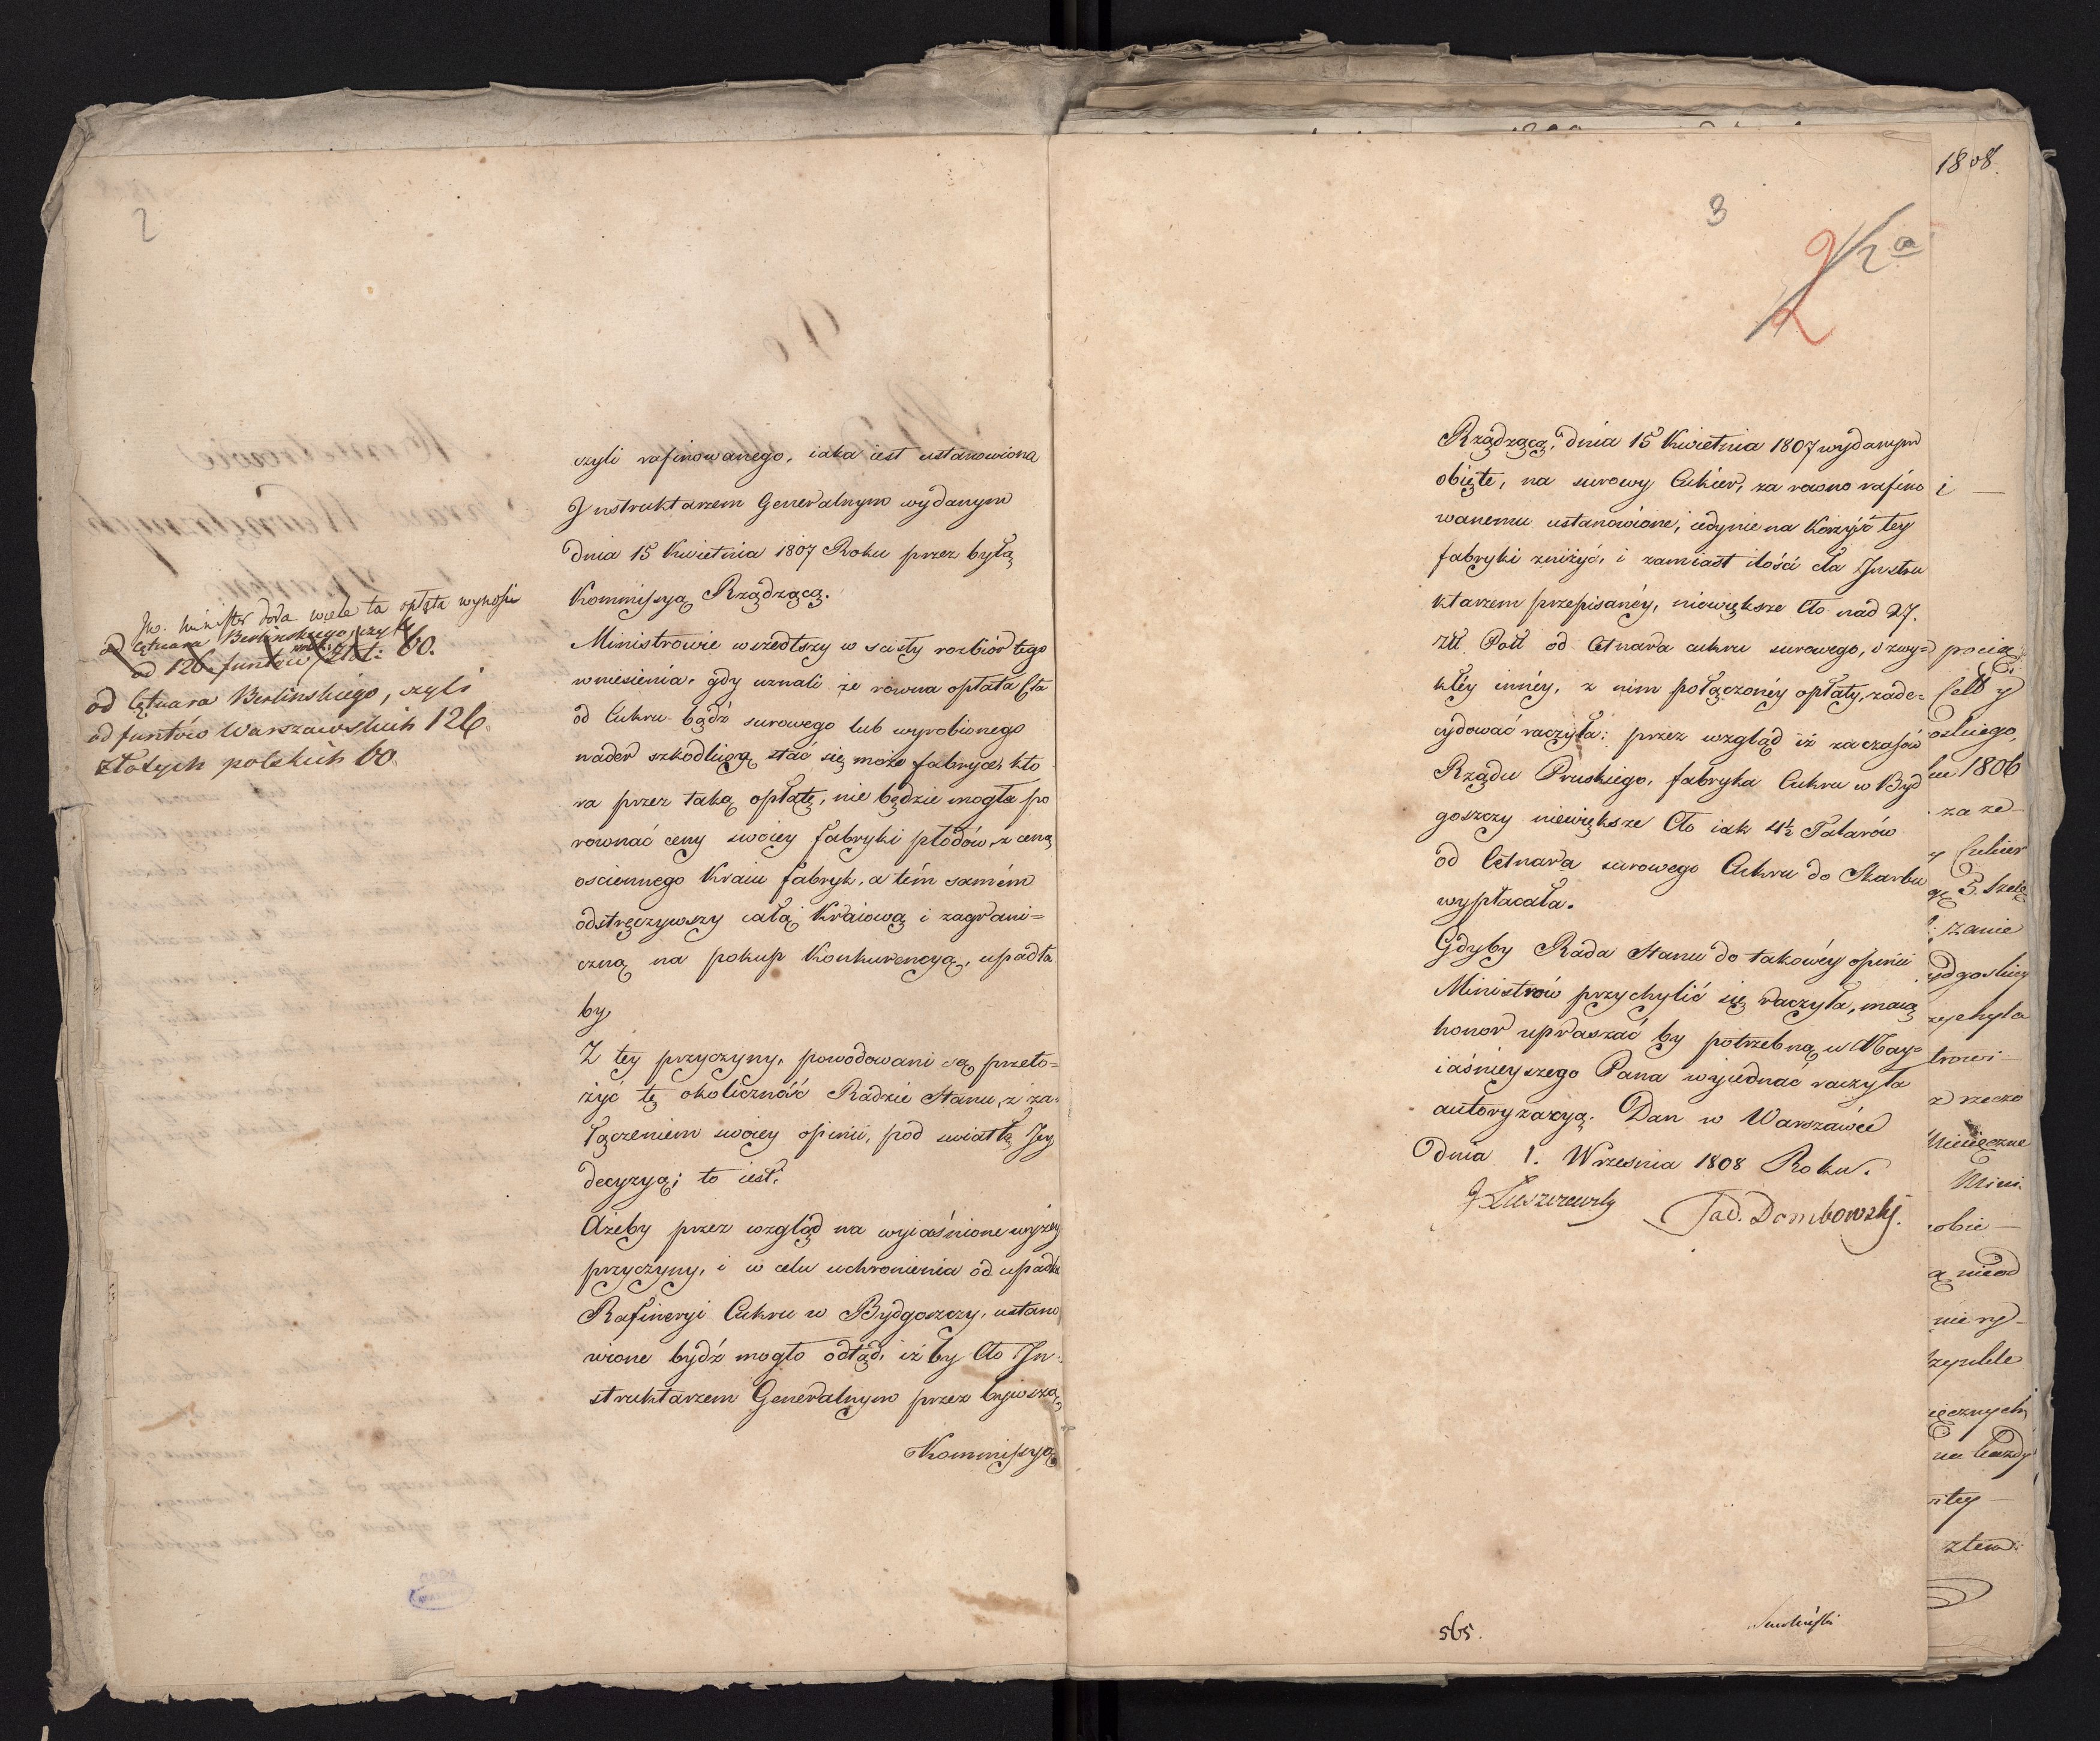 2
Jw. Minister doda wiele ta opłata wynosi
od Cętnara Berlinskiego, czyli
od 126 funtów złot: 60.
od Cętnara Berlinskiego, czyli
od funtów Warszawskich 126.
złotych polskich 60.
czyli rafinowanego, iaka iest ustanowiona
Instruktarzem Generalnym wydanym
dnia 15 Kwietnia 1807 Roku przez byłą
Kommissyą Rządzącą.
Ministrowie wszedłszy w scisły rozbiór tego
wniesienia, gdy uznali że rowna opłata Cła
od Cukru bądź surowego lub wyrobionego
nader szkodliwą stać się może fabryce, kto
ra przez taką opłatę, nie będzie mogła po
rownać ceny swoiey fabryki płodów, z ceną
osciennego Kraiu fabryk, a tém samém
odstręczywszy całą Kraiową i zagrani=
czną na pokup Konkurencyą, upadła
by
Z tey przyczyny, powodowani są przeło=
żyć tę okoliczność Radzie Stanu, z za=
łączeniem swoiey opinii, pod swiatłą Jey
decyzyą; to iest:
Ażeby przez wzgląd na wyiaśnione wyżey
przyczyny, i w celu uchronienia od upadku
Rafineryi Cukru w Bydgoszczy, ustano
wione bydź mogło odtąd, iż by Cło In=
struktarzem Generalnym przez bywszą
Kommissyą
3
2
2 a
Rządzącą, dnia 15 Kwietnia 1807 wydanym
obięte, na surowy Cukier, za rowno rafino
wanemu ustanowione, iedynie na Korzyść tey
fabryki zniżyć, i zamiast ilości cła Instru
ktarzem przepisanéy, niewiększe Cło nad 27.
Zł. Poll od Cetnara cukru surowego, i zwy=
kłéy innéy, z nim połączonéy opłaty, zade=
cydować raczyła: przez wzgląd iż za czasów
Rządu Pruskiego, fabryka Cukru w Byd
goszczy niewiększe Cło iak 4½ Talarów
od Cetnara surowego Cukru do Skarbu
wypłacała.
Gdyby Rada Stanu do takowéy opinii
Ministrów przychylić się raczyła, maią
honor upraszać by potrzebną u Nay=
iaśnieyszego Pana wyiednać raczyła
autoryzacyą. Dan w Warszawie
dnia 1. Wrzesnia 1808 Roku.
J Łuszczewski Tad. Dembowski.
565.
1808.
i —
pocią
oskiego,
1806
za ze
Cukier
5.
zanie
ydgoskiey
zychyla
trowi
z rzeczo
Mieięczne
Mini
obie —
nieod
nie ry-
ięcznych
na każdy
ztem